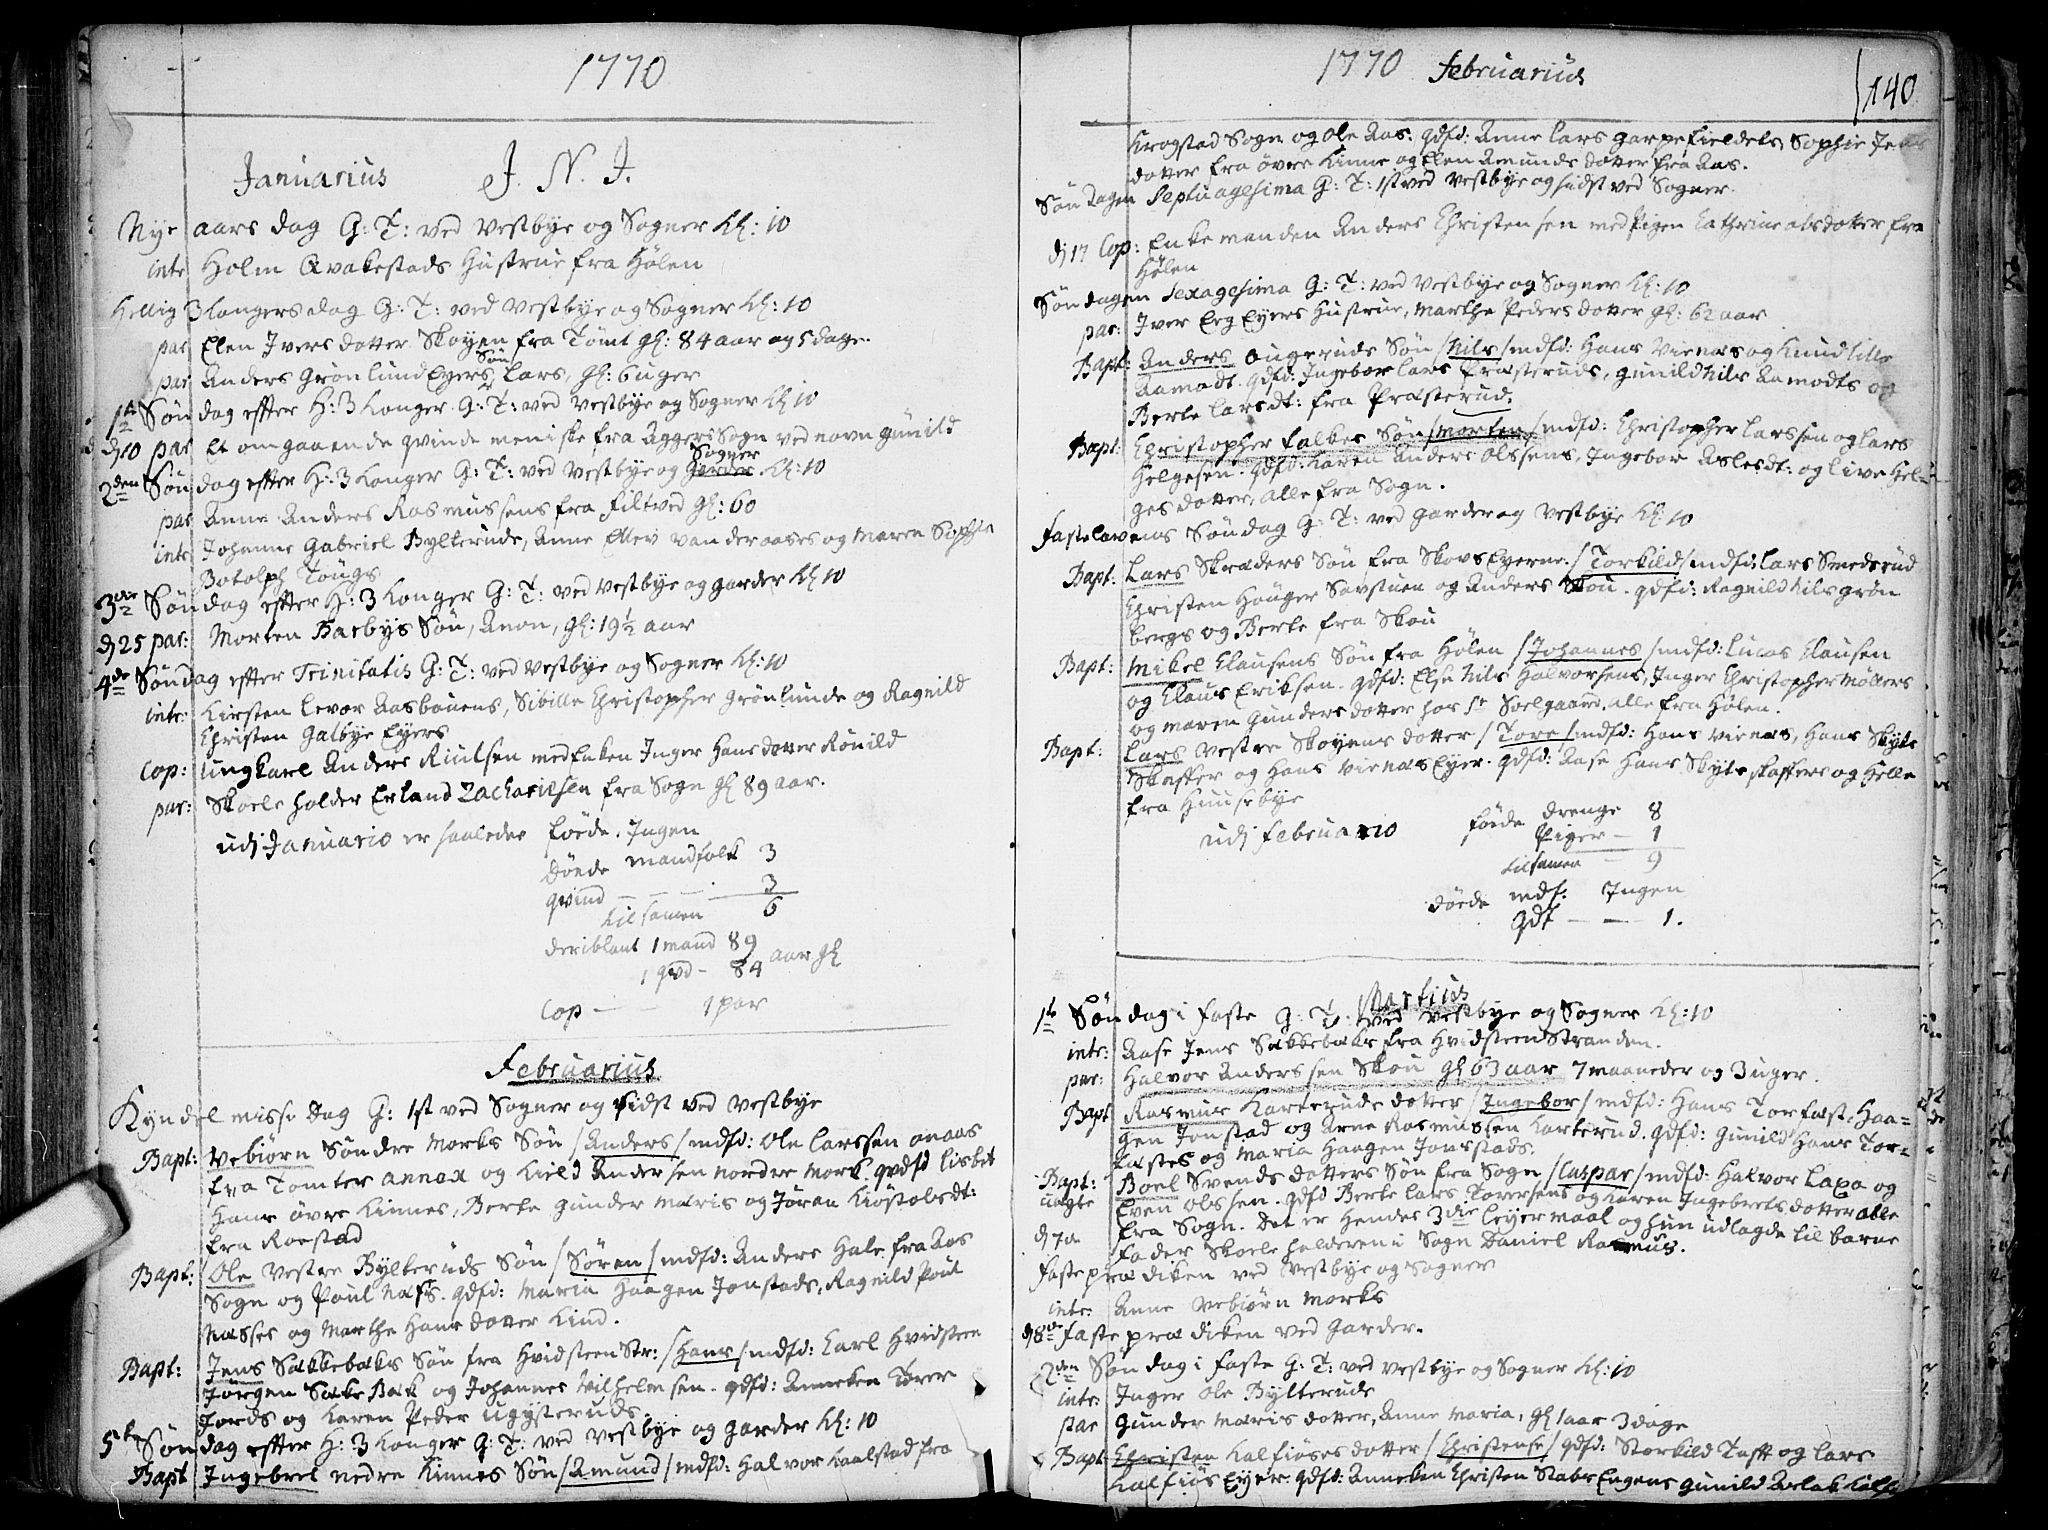 1770
Januarius J. N. J.
Nye aars dag G: T: ved Vestbye og Sogner Kl: 10
intr Holm Qvakestads Hustrue fra Hølen
Hellig 3 Kongers dag G: T: ved Vestbye og Sogner Kl: 10
par Elen Ivers dotter Skoyen fra Tomt gl: 84 aar og 5 dage.
par Anders Grønlund Eyers Søn Lars, gl: 6 uger
1ste Søndag effter H: 3 Konger G: T: ved Vestbye og Sogner Kl 10
dj 10 par Et omgaaende qvinde meniske fra Aggers Sogn ved navn Gunild
2den Søndag effter H: 3 Konger G: T: ved Vestbye og Garder Sogner Kl: 10
par Anne Anders Rasmussens fra Filtved gl: 60
intr Johanne Gabriel Bylterude, Anne Ellev Vanderaases og Maren Sophia
Botolph Tougs
3die Søndag effter H: 3 Konger G: T: ved Vestbye og Garder Kl 10
dj 25 par: Morten Barbys Søn, Anon, gl: 19 1/2 aar
4de Søndag effter Trinitatis G: T: ved Vestbye og Sogner Kl: 10
intr: Kirsten Levor Aasbouens, Sibille Christopher Grønlunde og Ragnild
Christen Galbye Eyers
Cop: Ungkarl Anders Riulsen med Enken Inger Hans dotter Rønild
par: Skoele holder Erland Zachariesen fra Sogn gl 89 aar.
udj Januario er saaledes Føede. Ingen
Døede mandfolk 3
qvind — — — 3
tilsamen 6
deriblant 1 mand 89
1 qvd - 84 aar gl
Cop — — 1 par
Februarius
Kyndelmisse Dag G: 1st ved Sogner og sidst ved Vestbye
Bapt: Vebiørn Søndre Morks Søn /Anders/ mdfd: Ole Larssen Onaas
fra Tomter annex og Kield Andersen Nordre Mork. qvdfd Lisbet
Hans øvre Kinnes, Berte Gunder Maris og Jøran Kiøstolsdt:
fra Roestad
Bapt: Ole Vestre Bylteruds Søn /Søren/ mdfd: Anders Hale fra Aas
Sogn og Poul Næss. qdfd: Maria Haagen Jonstads, Ragnild Poul
Næsses og Marthe Hans dotter Lind.
Bapt: Jens Sækkebæks Søn fra HvidsteenStr: /Hans/ mdfd: Carl Hvidsteen
Jørgen Sække Bæk og Johannes Vilhelmsen. qdfd: Anneken Torer
Fords og Karen Peder Ugysteruds.
5te Søndag effter H: 3 Konger G: T: ved Vestbye og Garder Kl: 10
Bapt Ingebrel nedre Kinnes Søn /Amund/ mdfd: Halvor Kaalstad fra
1770 Februarius
140
Krogstad Sogn og Ole Aas. qdfd: Anne Lars Garpefieldets, Sophie Jens
dotter fra øvre Kinne og Elen Amunds dotter fra Aas.
Søndagen Septuagesima G: T: 1st ved Vestbye og sidst ved Sogner.
dj 17 Cop: Enkemanden Anders Christensen med Pigen Cathrine Olsdotter fra
Hølen
Søndagen Sexagesima G: T: ved Vestbye og Sogner Kl: 10
par: Iver Eeg Eyers Hustrue, Marthe Peders dotter gl: 62 aar
Bapt: Anders Ougeruds Søn /Nils/ mdfd: Hans Virnæs og Knud lille
Aamods. qdfd: Ingebor Lars Præsteruds, Gunild Nils Aamodts og
Berte Larsdt: fra Præsterud.
Bapt: Christopher Falkes Søn /Morten/ mdfd: Christopher Larssen og Lars
Helgesen. qdfd: Karen Anders Olssens, Ingebor Aslesdt: og Live Hel-
ges dotter, alle fra Sogn.
Fastelavens Søndag G: T: ved Garder og Vestbye Kl: 10
Bapt: Lars Skræders Søn fra Skovs Eyerne. /Torkild/ mdfd: Lars Smedsrud
Christen Houger Savstuen og Anders Skou. qdfd: Ragnild Nils Grøn
bergs og Berte fra Skou
Bapt: Mikel Clausens Søn fra Hølen /Johannes/ mdfd: Lucas Clausen
og Claus Eriksen. qdfd: Else Nils Halvorsens, Inger Christopher Møllers
og Maren Gunders dotter hos Sr Soelgaard, alle fra Hølen.
Bapt: Lars Vestre Skoyens dotter /Tore/ mdfd: Hans Virnæs, Hans Skyts
Skaffer og Hans Virnæs Eyer. qdfd: Aase Hans Skyts skaffers og Helle
fra Huusebye
udj Februario føede Drenge 8
Piger — 1
tilsamen — 9
døede mdf: Ingen
qdf — — 1.
Martius
1ste Søndag i Faste G: T: ved Vestbye og Sogner Kl: 10
intr: Aase Jens Sækkebæks fra HvidsteenStranden.
par: Halvor Anderssen Skou gl 63 aar 7 maaneder og 3 uger.
Bapt Rasmus Karterude dotter /Ingebor/ mdfd: Hans Torfæst, Haa-
gen Jonstad og Arne Rasmussen Karterud. qdfd: Gunild Hans Tor-
fæstes og Maria Haagen Jonstads.
Bapt: Boel Svends dotters Søn fra Sogn /Caspar/ mdfd: Halvor Laxa og
uægte Even Olssen. qdfd Berte Lars Torersens og Karen Ingebrets dotter alle
dj 7de fra Sogn. Det er hendes 3die leyermaal og hun udlagde til barne
fader Skoeleholderen i Sogn Daniel Rasmus.
Fasteprædiken ved Vestbye og Sogner
intr: Anne Vebiørn Morks
dj 8de Fasteprædiken ved Garder.
2den Søndag i Faste G: T: ved Vestbye og Sogner Kl: 10
intr: Inger Ole Bylterude
par Gunder Maris dotter, Anne Maria, gl 1 aar 3 dage
Bapt Christen Kalfiøses dotter /Christense/ qdfd: Storkild Toft og Lars
Kalfiøs Eyer. qdfd: Anneken Christen Stabs Engens Gunild Aslak